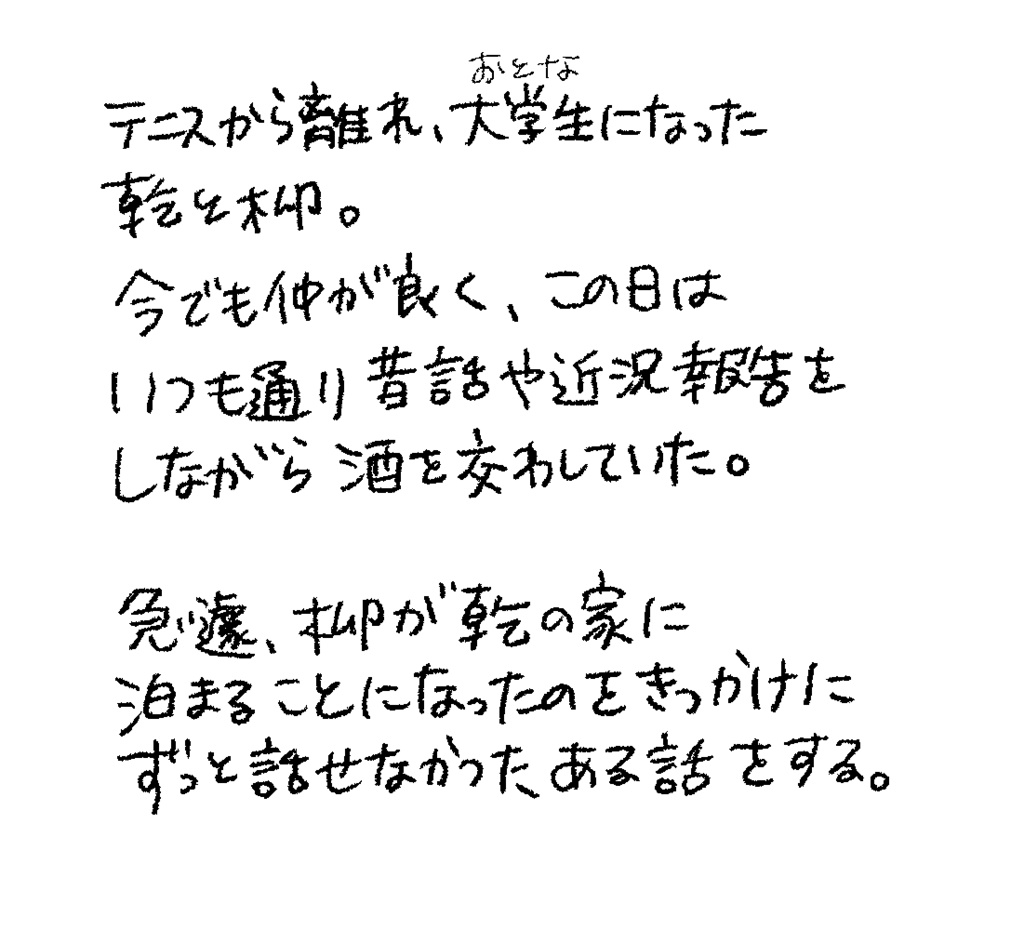 おとな
テニスから離れ、大学生になった
乾と柳。
今でも仲が良く、この日は
いつも通り昔話や近況報告を
しながら酒を交わしていた。
急遽、柳が乾の家に
泊まることになったのをきっかけに
ずっと話せなかったある話をする。